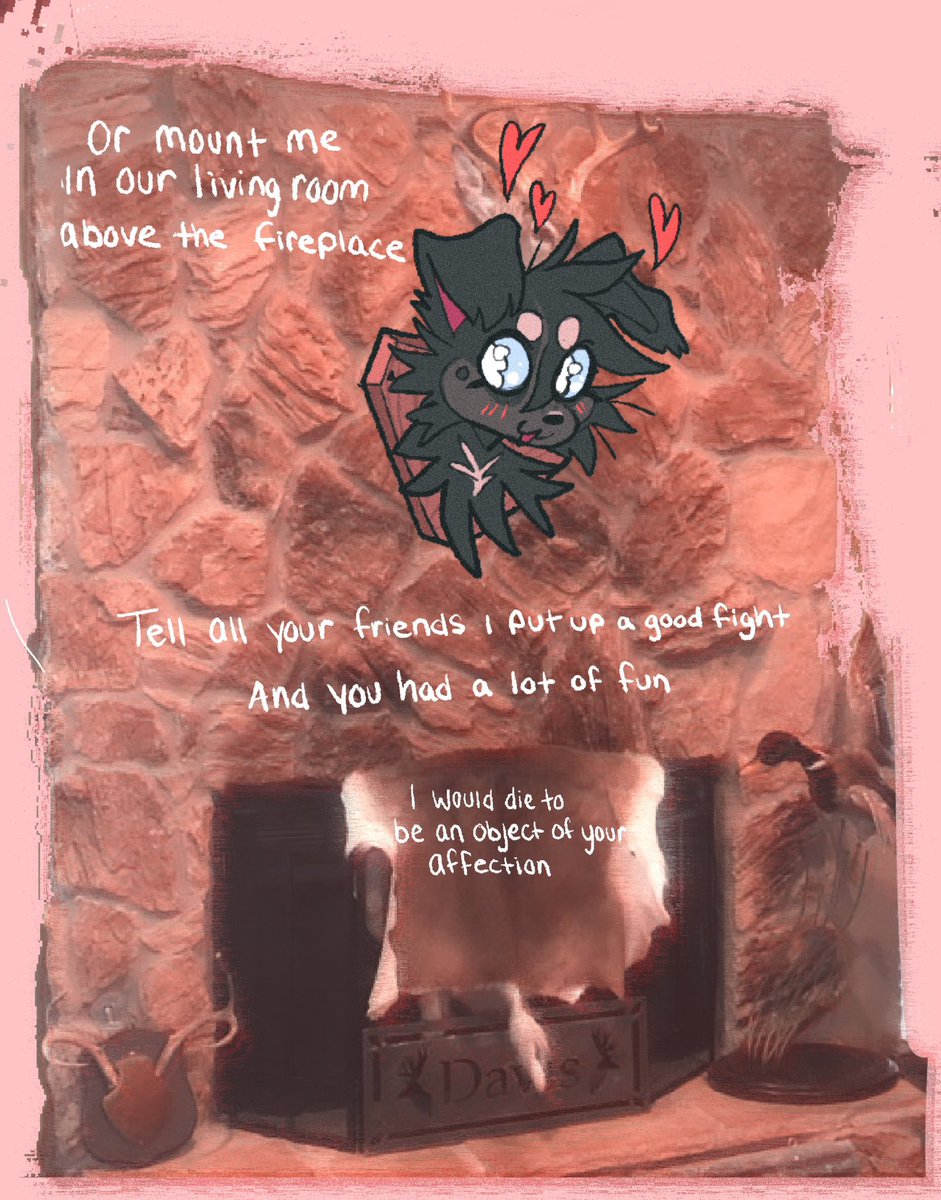 Or mount me
In our living room
above the fireplace
Tell all your friends i put up a good fight
And you had a lot of fun
I would die to
be an object of your
affection
Davis